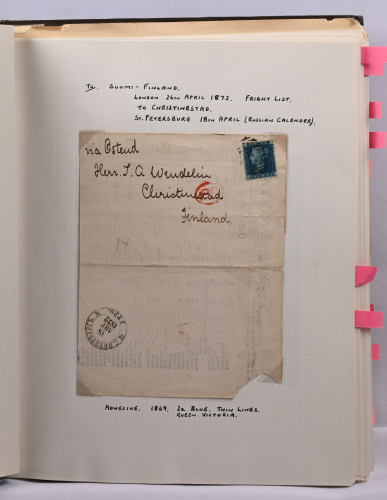 To. SUOMI - FINLAND.
LONDON 26TH APRIL 1872. FRIGHT LIST.
TO CHRISTINESTAD.
ST. PETERSBURG 18TH APRIL (RUSSIAN CALENDER).
via Ostend
Herr. J. A Wendelin
Christinestad
Finland
14
18
1872
ADHESIVE. 1869. 2D BLUE. THIN LINES.
QUEEN VICTORIA.